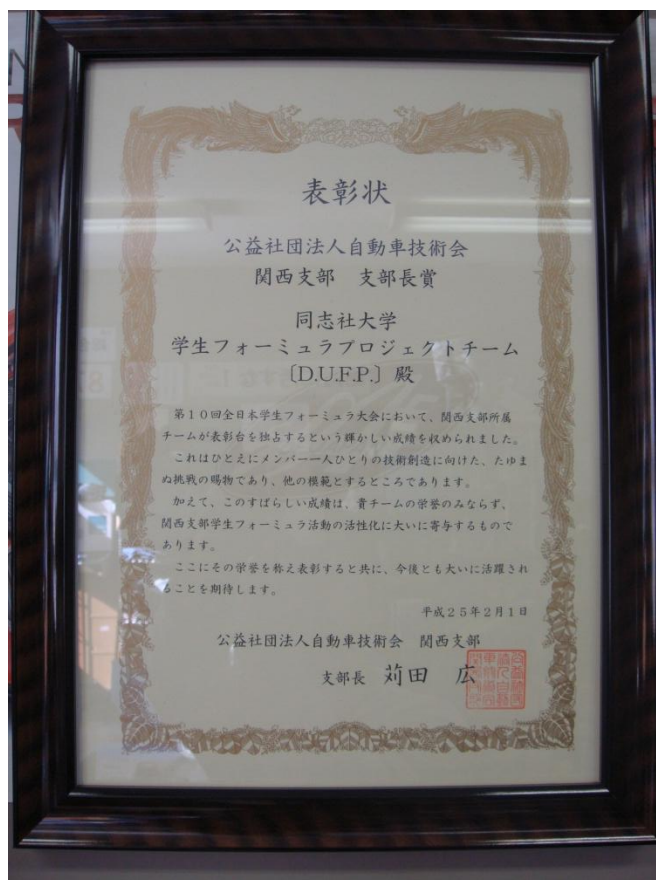 表彰状
公益社団法人自動車技術会
関西支部　支部長賞
同志社大学
学生フォーミュラプロジェクトチーム
〔D.U.F.P.〕殿
第１０回全日本学生フォーミュラ大会において、関西支部所属
チームが表彰台を独占するという輝かしい成績を収められました。
これはひとえにメンバー一人ひとりの技術創造に向けた、たゆま
ぬ挑戦の賜物であり、他の模範とするところであります。
加えて、このすばらしい成績は、貴チームの栄誉のみならず、
関西支部学生フォーミュラ活動の活性化に大いに寄与するもので
あります。
ここにその栄誉を称え表彰すると共に、今後とも大いに活躍され
ることを期待します。
平成２５年２月１日
公益社団法人自動車技術会　関西支部
支部長　苅田　広